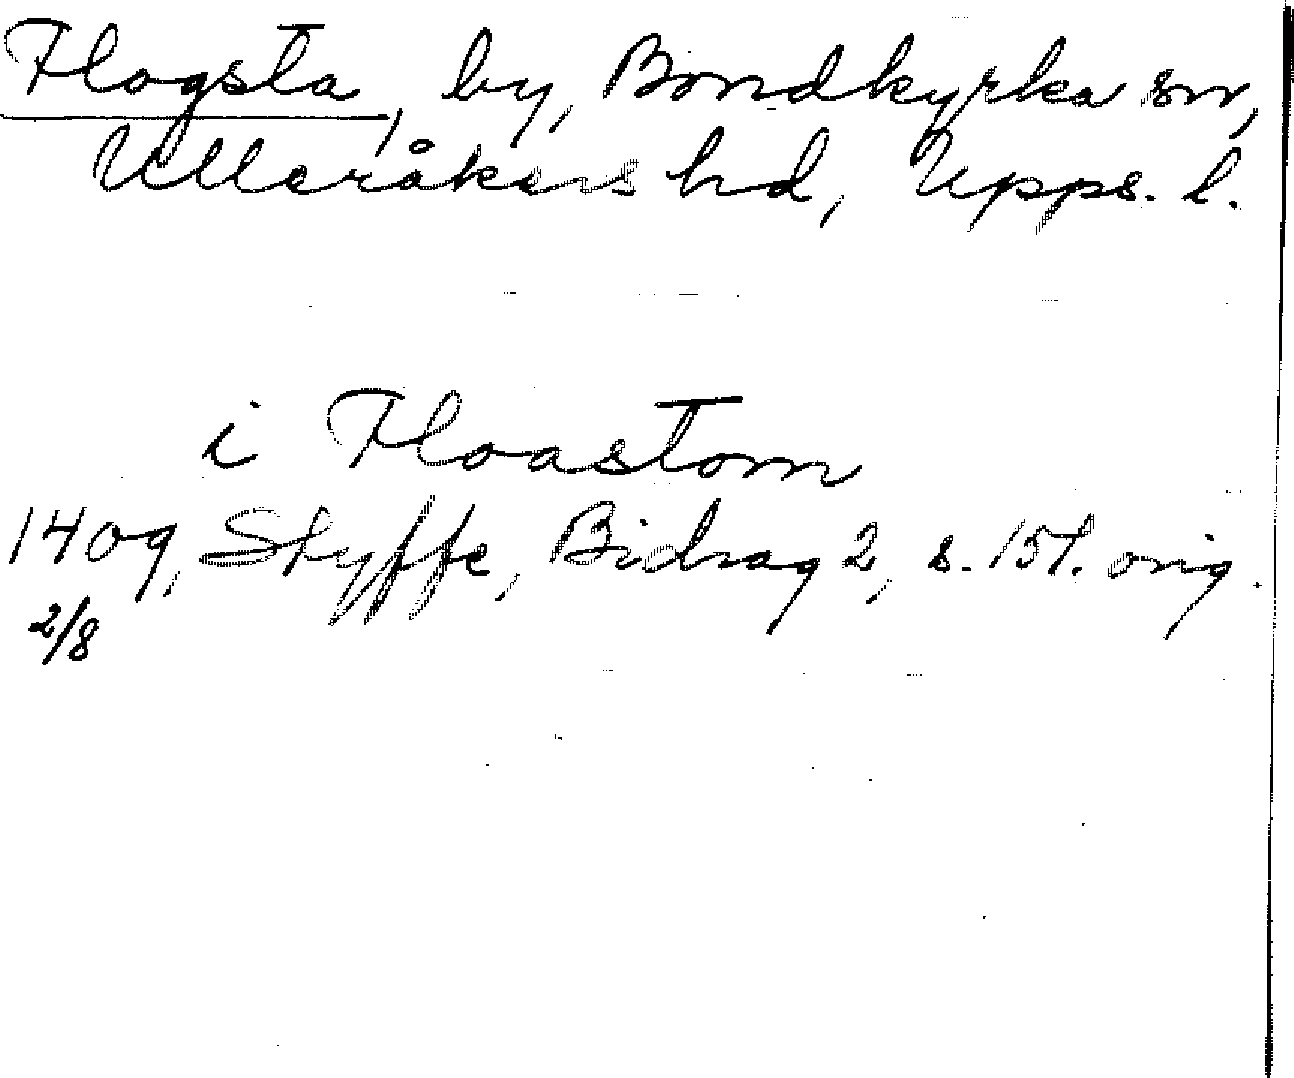 Flogsta, by, Bondkyrka sn,
Ulleråkers hd, Upps. l.
i Floastom
1409, Styffe, Bidrag 2, s. 151. orig.
2/8